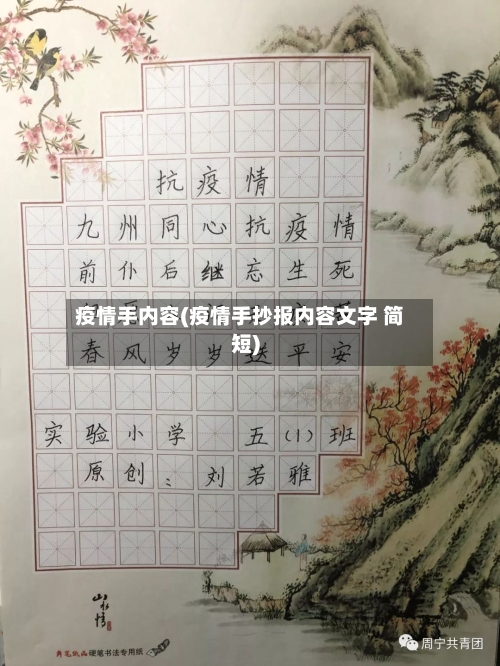 抗疫情
九州同心抗疫情
前仆后继忘生死
疫情手内容(疫情手抄报内容文字 简
短)
春风岁岁送平安
实验小学 五(1)班
原创:刘若雅
山水情
硬笔书法专用纸
周宁共青团